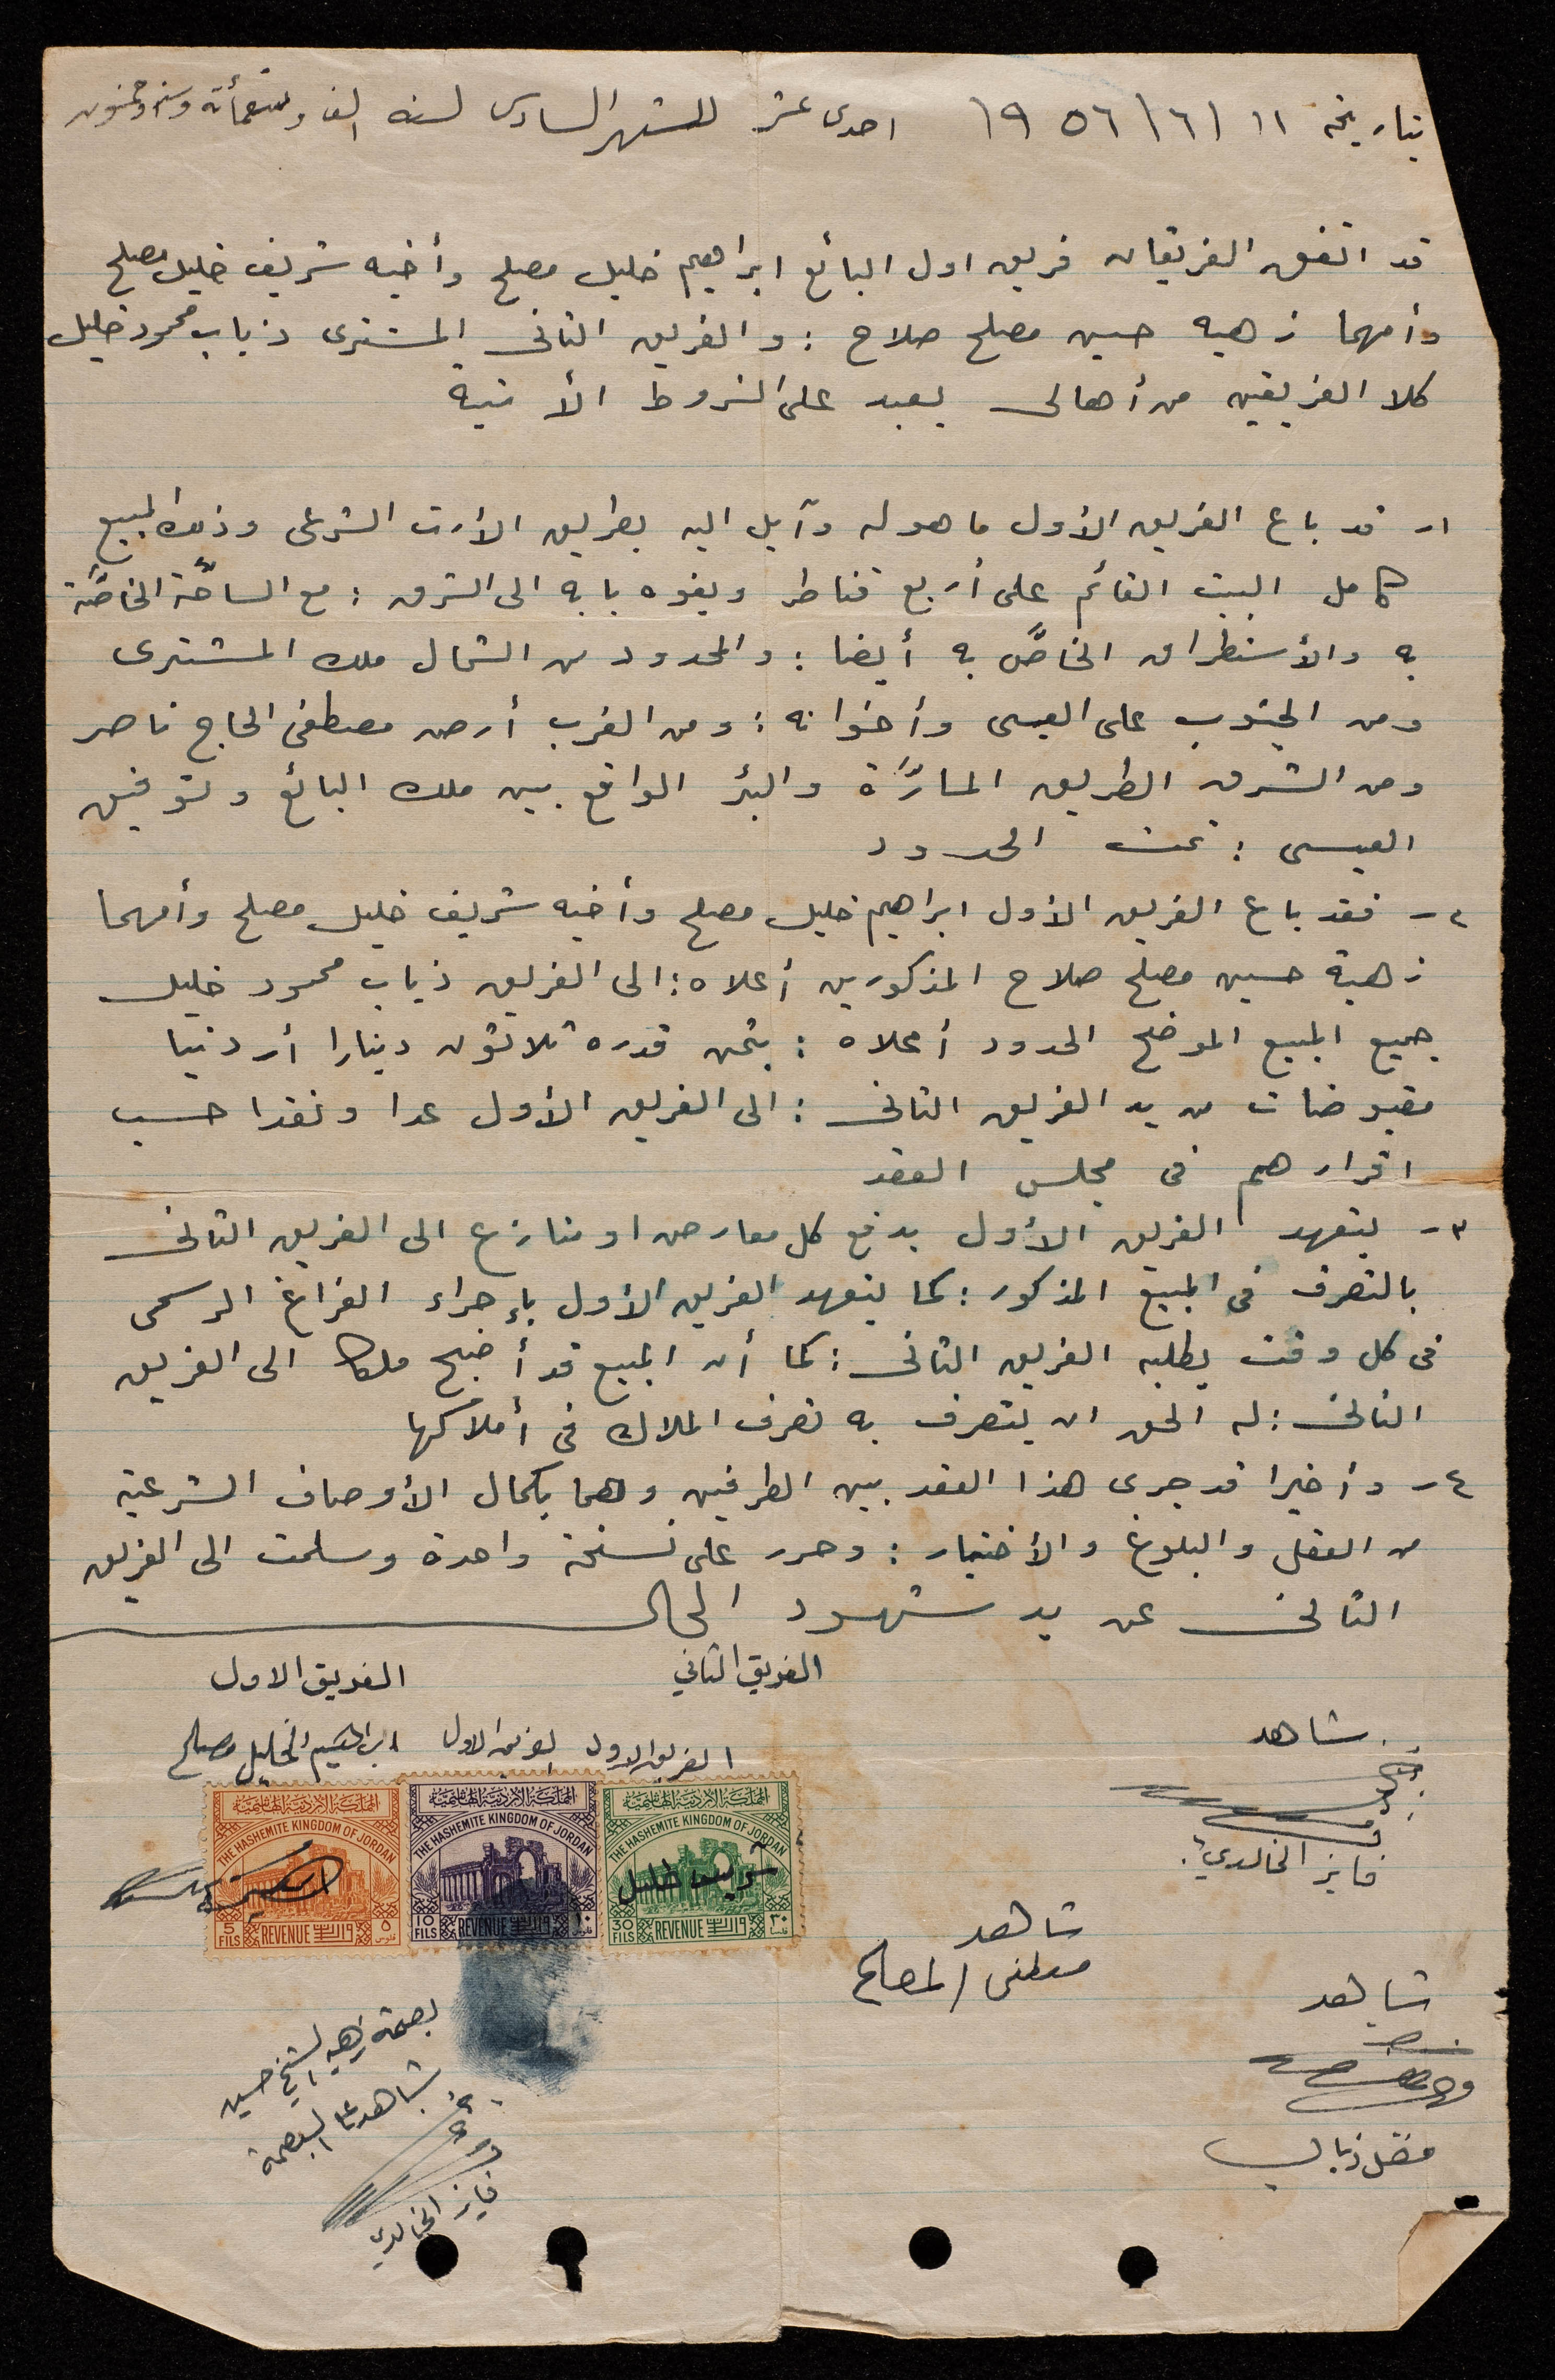 بتاريخ ١١/٦/١٩٥٦ احدى عشر للشهر السادس لسنه الف وتسعمأئة وستة وخمسون
قد اتفق الفريقان فريق اول البائع ابراهيم خليل مصلح وأخيه شريف خليل مصلح
وأمهما زهيه حسين مصلح صلاح : والفريق الثانى المشترى ذياب محمود خليل
كلا الفريقين من أهالى يعبد على الشروط الأتية
١ـ قد باع الفريق الأول ما هو له وآيل اليه بطريق الأرث الشرعى وذلك المبيع
كامل البيت القائم على أربع قناطر ويفوه بابه الى الشرق : مع الساحَّة الخاصَّة
به والأستطراق الخاصّ به أيضا : والمحدود من الشمال ملك المشترى
ومن الجنوب على العيسى وأخوانه : ومن الغرب أرض مصطفى الحاج ناصر
ومن الشرق الطريق المارّة والبئر الواقع بين ملك البائع وتوفيق
العيسى : تمت الحدود
٢ـ فقد باع الفريق الأول ابراهيم خليل مصلح وأخيه شريف خليل مصلح وأمهما
زهية حسين مصلح صلاح المذكورين أعلاه : الى الفريق ذياب محمود خليل
جميع المبيع الموضح الحدود أعلاه : بثمن قدره ثلاثون دينارا أردنيا
مقبوضات من يد الفريق الثانى : الى الفريق الأول عدا ونقدا حسب
اقرارهم فى مجلس العقد
٣ـ يتعهد الفريق الأول بدفع كل معارض او منازع الى الفريق الثانى
بالتصرف فى المبيع المذكور : كما يتعهد الفريق الأول بإجراء الفراغ الرسمى
فى كل وقت يطلبه الفريق الثانى : كما أن المبيع قد أضبح ملكا الى الفريق
الثانى : له الحق ان يتصرف به تصرف الملاك فى أملاكها
٤ـ وأخيرا قد جرى هذا العقد بين الطرفين وهما بكمال الأوصاف الشرعية
من العقل والبلوغ والأختيار : وحرر على نسخة واحدة وسلمت الى الفريق
الثانى عن يد شهود الحال
الفريق الثاني الفريق الاول
شاهد
الفريق الاول الفريق الاول ابراهيم الخليل مصلح
المملكة الاردنية الهاشمية المملكة الاردنية الهاشمية المملكة الاردنية الهاشمية
THE HASHEMITE KINGDOM OF JORDAN THE HASHEMITE KINGDOM OF JORDAN THE HASHEMITE KINGDOM OF JORDAN
شريف خليل
5 FILS REVENUE ٥ فلوس 10 FILS REVENUE ١٠ فلوس 30 FILS REVENUE ٣٠ فلسا
فايز الخالدي
شاهد
مصطفى المصلح
شاهد
فضل ذياب
بصمة زهيه الشيخ حسين
شاهد على البصمة
فايز الخالدي